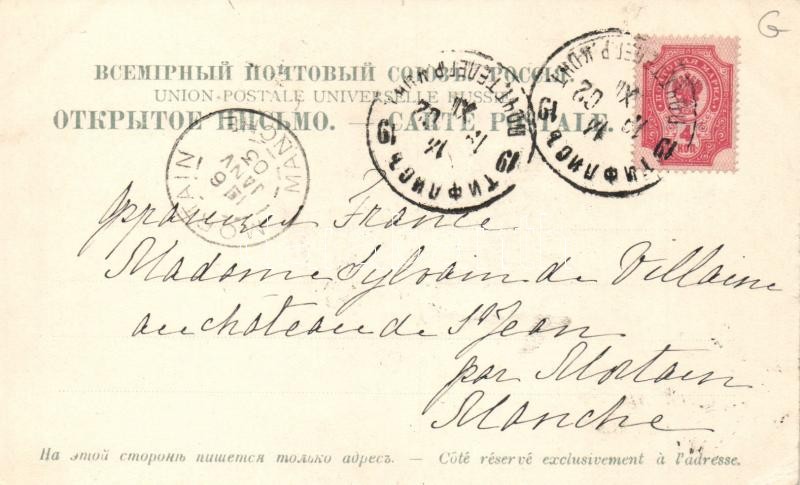 G
ВСЕМІРНЫЙ ПОЧТОВЫЙ СОЮЗЪ. РОССІЯ.
UNION POSTALE UNIVERSELLE RUSSIE
ОТКРЫТОЕ ПИСЬМО. — CARTE POSTALE.
ТИФЛИСЪ
19 19
14
XII 02
ПОЧТ. ТЕЛЕГР. КОНТ.
ТИФЛИСЪ
19 19
14
XII 02
ПОЧТ. ТЕЛЕГР. КОНТ.
4
MORTAIN
MANCHE
6
JANV
03
France
Madame Sylvain de Villaine
au château de St Jean
par Mortain
Manche
На этой сторонѣ пишется только адресъ. — Côté réservé exclusivement à l'adresse.